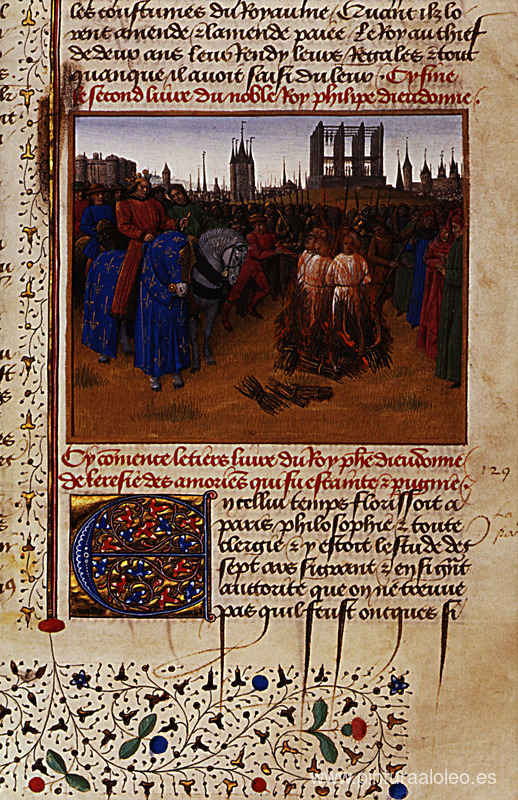 les coustumes du Royaume. Quant ilz lo
rent amende & lamende paiee. Le Roy au chief
de deux ans leur rendy leurs Regales & tout
quanque il avoit saisi du leur. Cy fine
le second livre du noble Roy phelipe dieudonne.
Cy comence le tiers livre du Roy phe dieudonne
de leresie des amories qui fu estainte & pugnie.
En icellui temps florissoit a
paris philosophie & toute
clergie & y estoit lestude des
sept ars si grant & en si grant
auctorite que on ne treuve
pas quil feust oncques si
129
www.pinturaaloleo.es